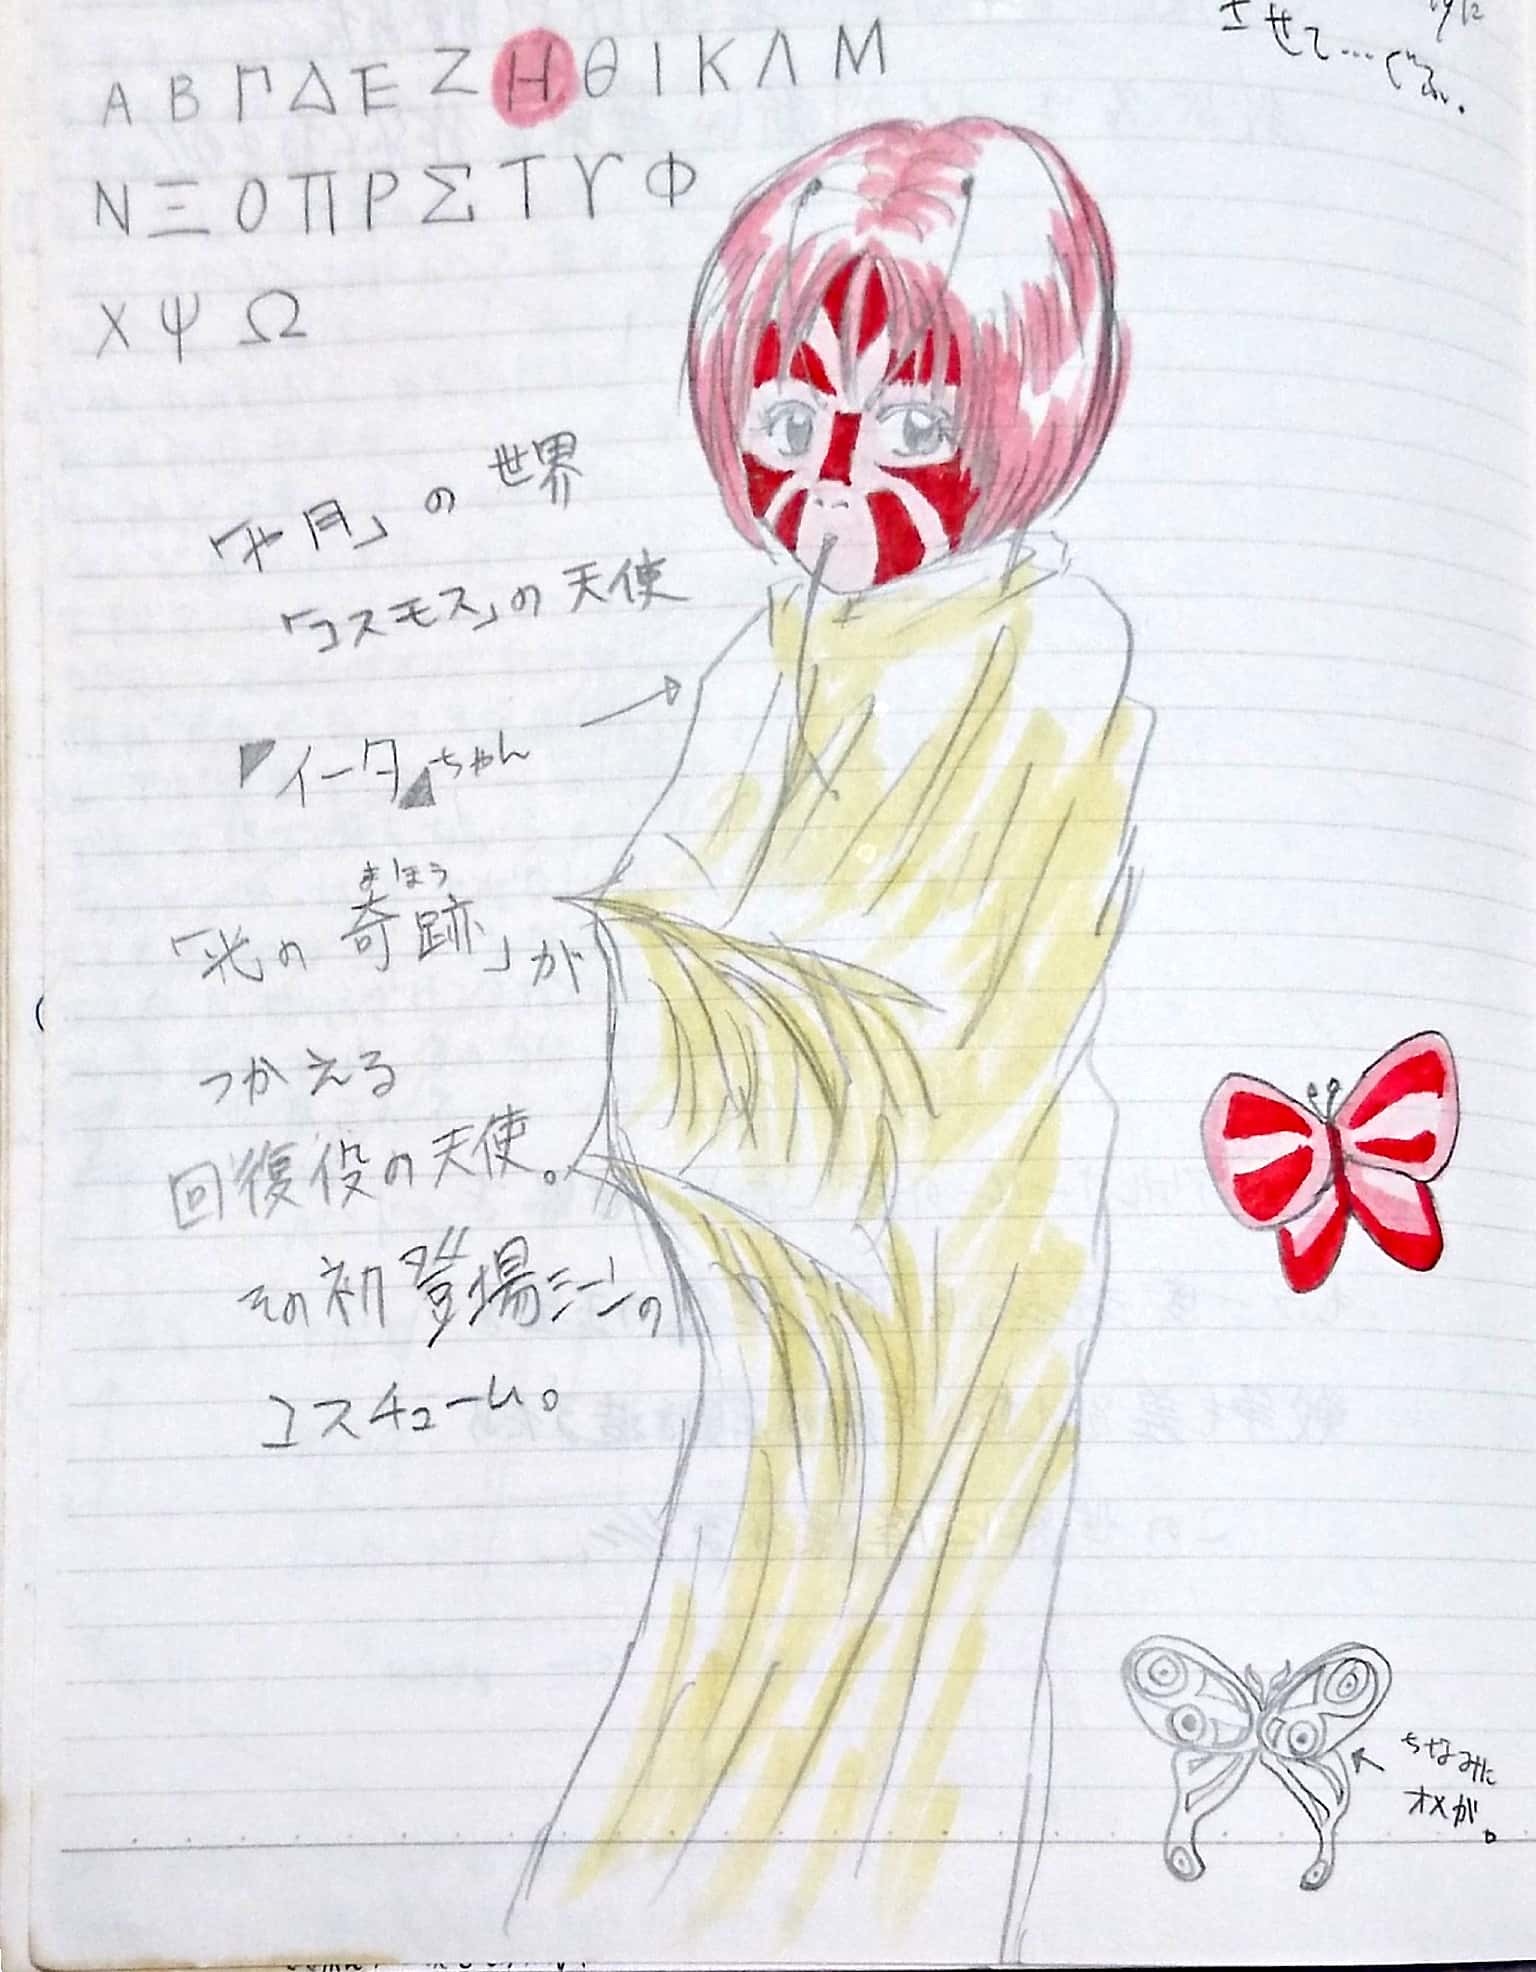 させて…ぐふ。
Α Β Γ Δ Ε Ζ Η Θ Ι Κ Λ Μ
Ν Ξ Ο Π Ρ Σ Τ Υ Φ
Χ Ψ Ω
の世界
「コスモス」の天使
『イータ』ちゃん
まほう
「光の奇跡」が
つかえる
回復役の天使。
その初登場シーンの
コスチューム。
ちなみに
オメガ。